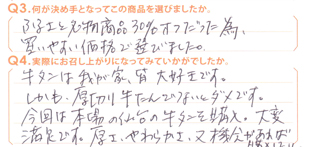 Q3.何が決め手となってこの商品を選びましたか。
ふるさと名物商品30%オフだった為、
買いやすい価格で選びました。
Q4.実際にお召し上がりになってみていかがでしたか。
牛タンは我が家、皆大好王です。
しかも、厚切り牛たんでないとダメです。
今回は本場の仙台の牛タンを購入。大変
満足です。厚さ、やわらかさ、又機会があれば